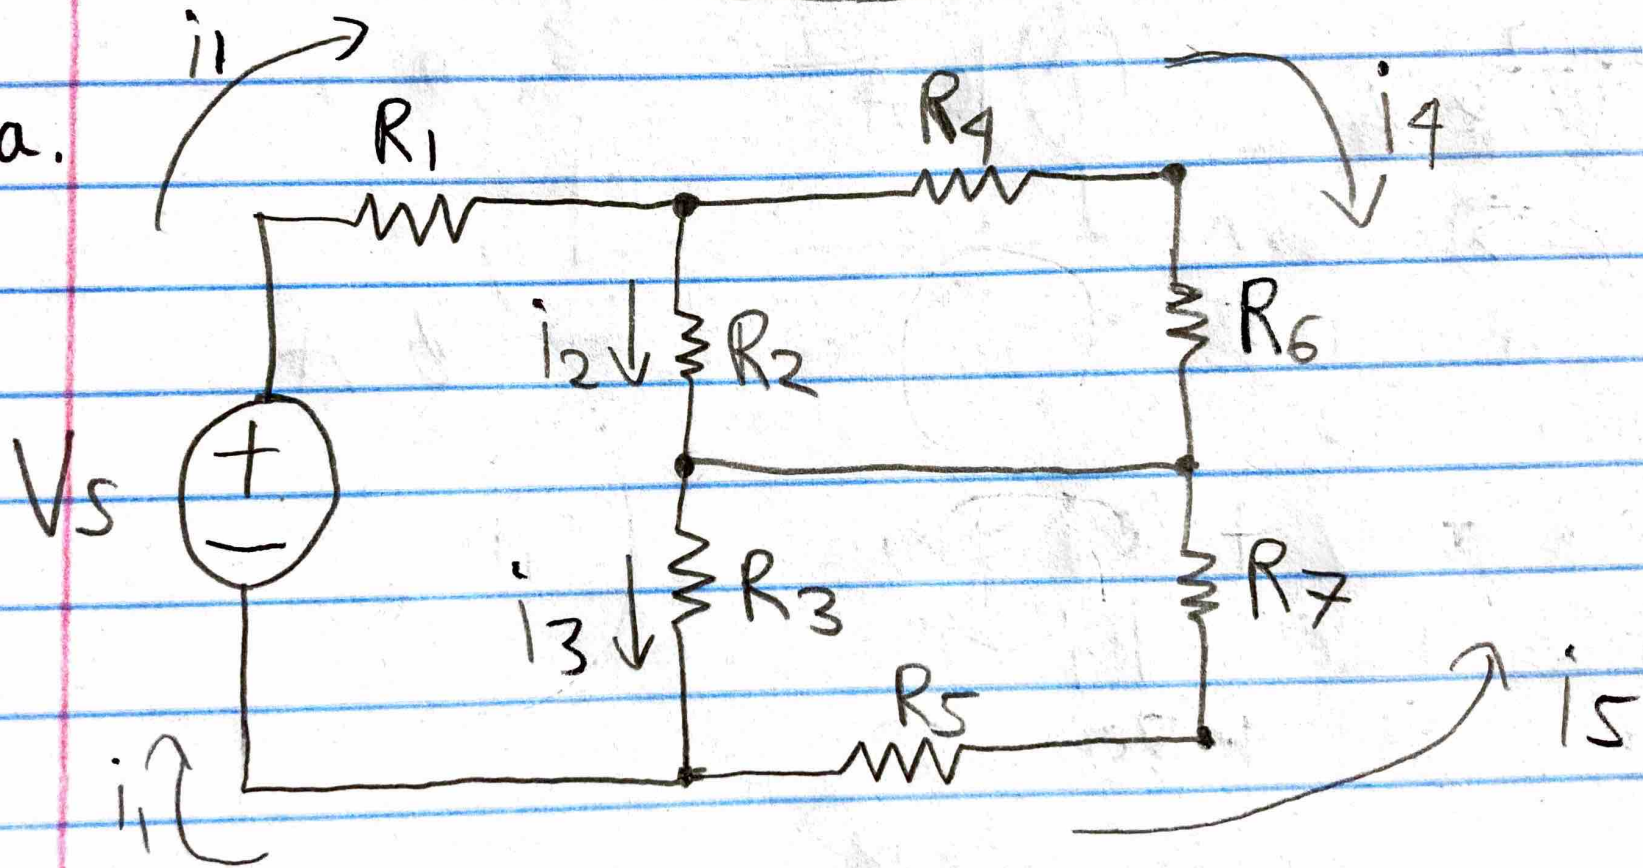 i1
a.
R1
R4
i4
i2
R2
R6
+
Vs
i3
R3
R7
R5
i5
i1